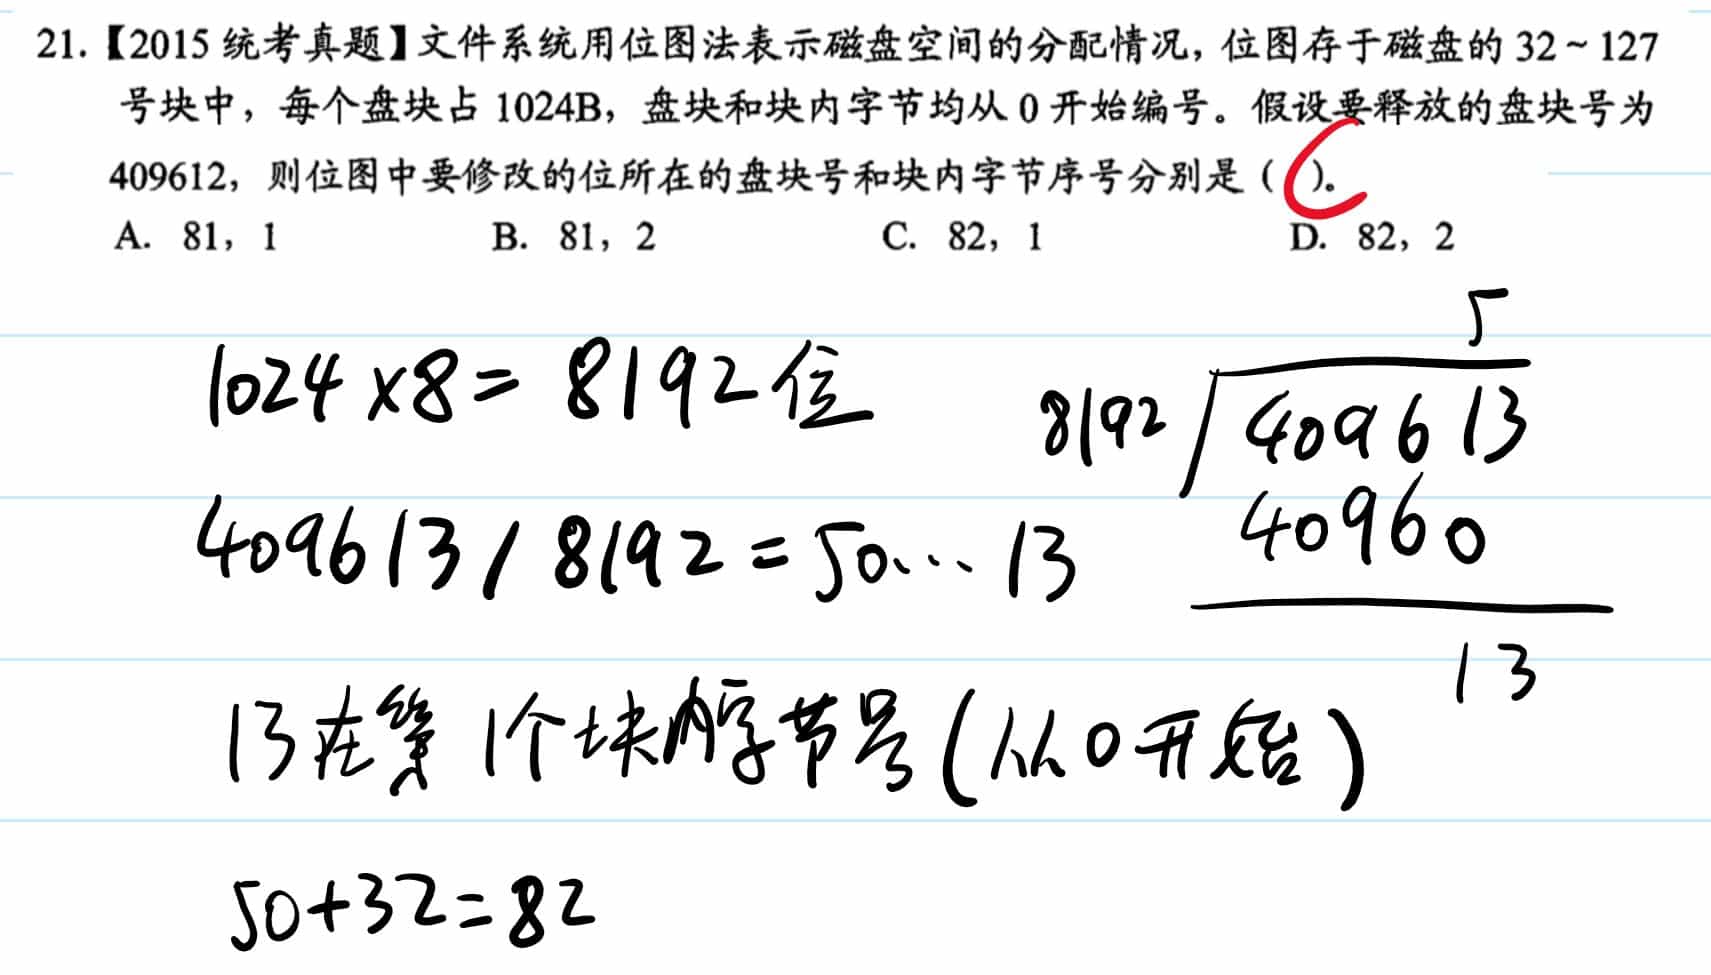 21.【2015统考真题】文件系统用位图法表示磁盘空间的分配情况，位图存于磁盘的32~127
号块中，每个盘块占1024B，盘块和块内字节均从0开始编号。假设要释放的盘块号为
409612，则位图中要修改的位所在的盘块号和块内字节序号分别是（ C ）。
A. 81，1 B. 81，2 C. 82，1 D. 82，2
1024×8=8192位
5
8192 409613
409613/8192=50...13
40960
13
13在第1个块内字节号(从0开始)
50+32=82